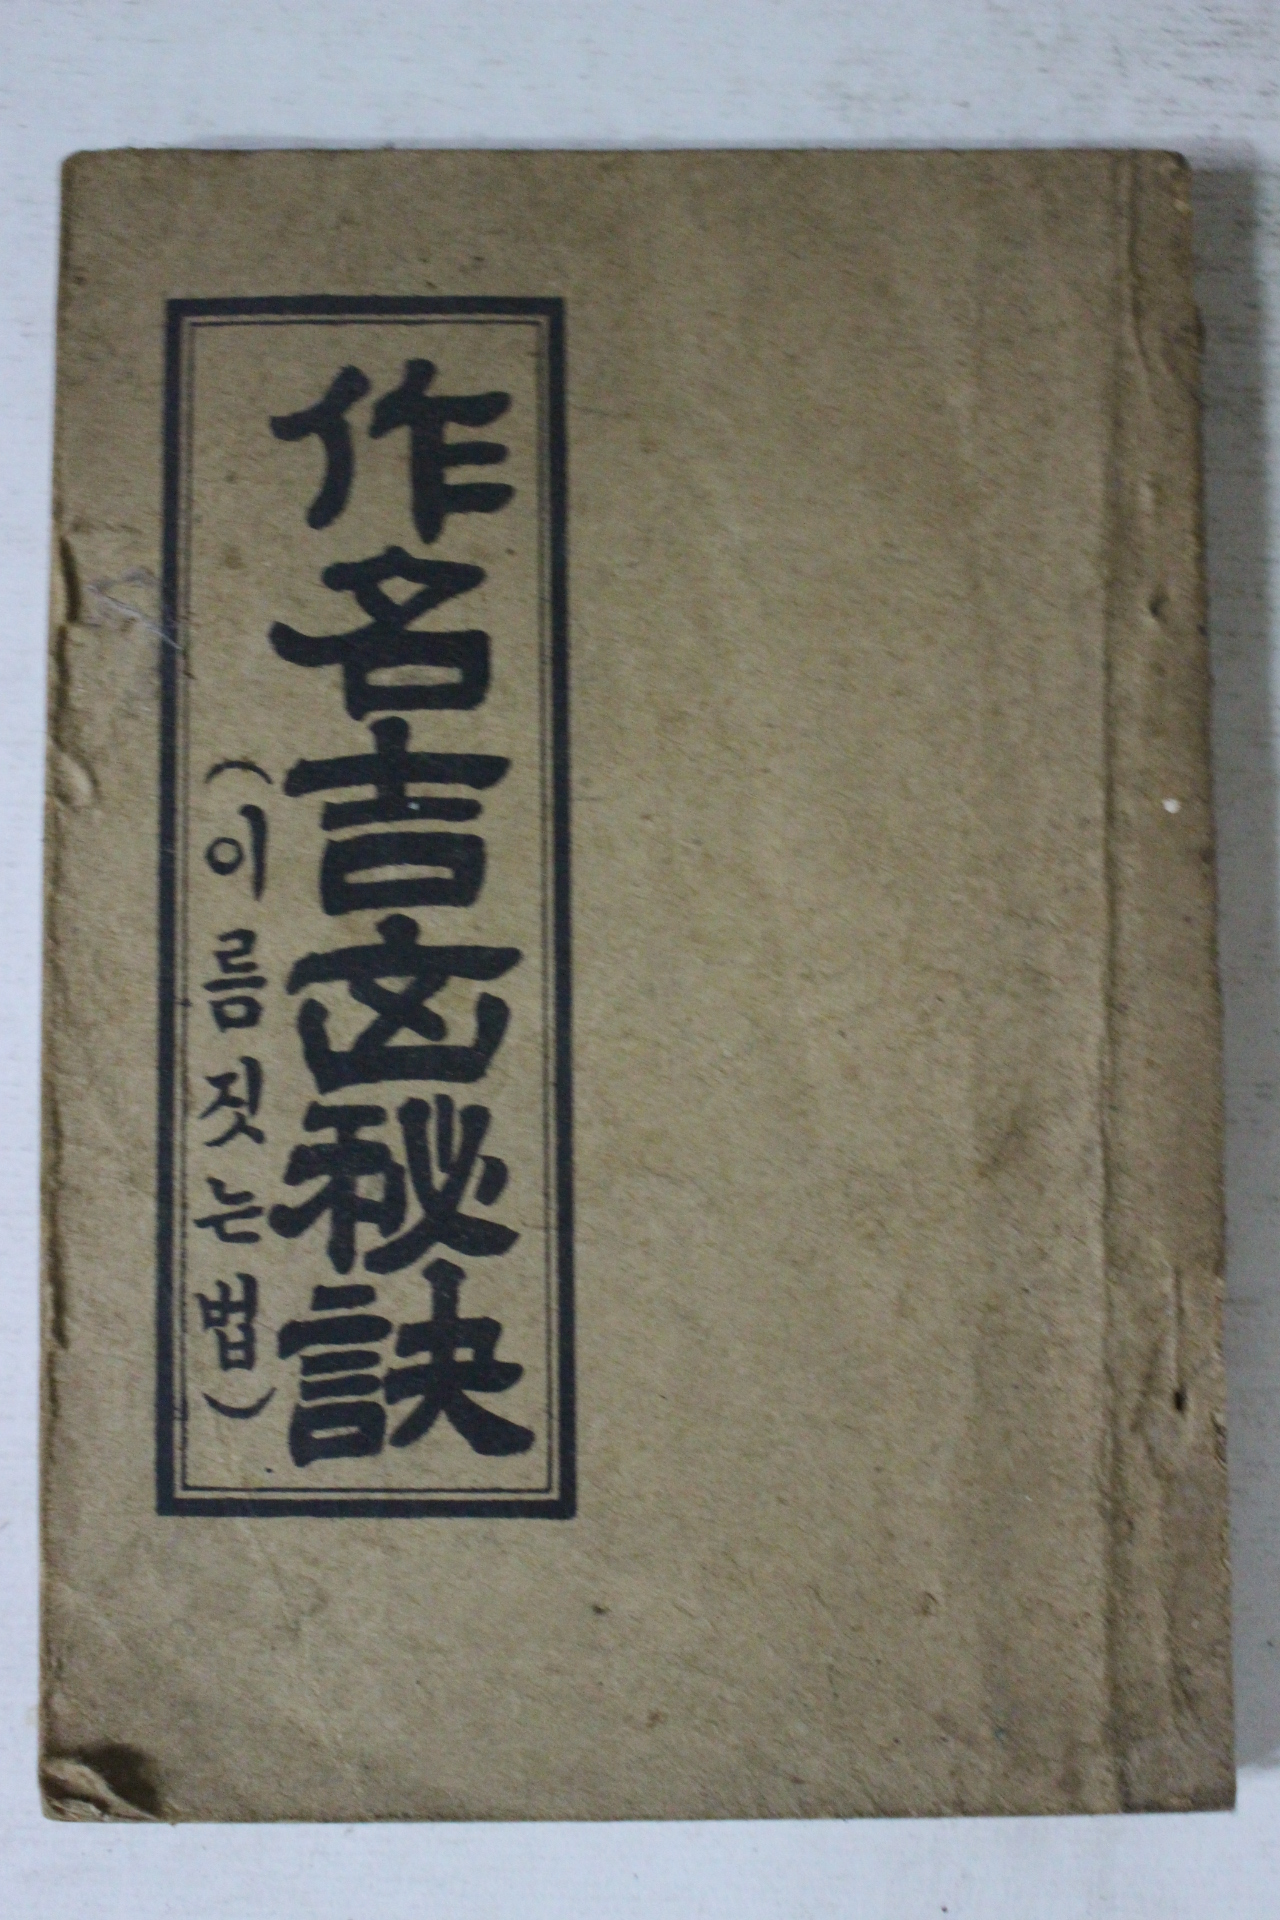 作名吉凶秘訣
(이름짓는법)